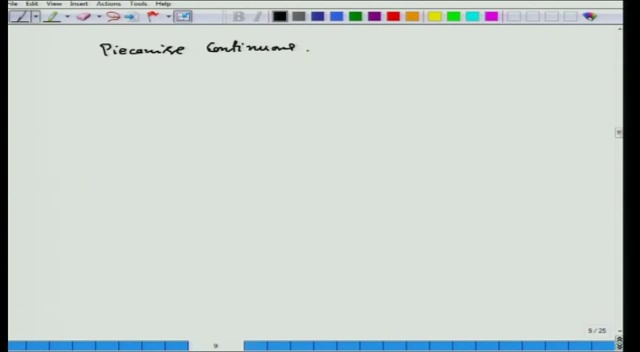 File Edit View Insert Actions Tools Help
B I
Piecewise Continuous.
9 / 25
9